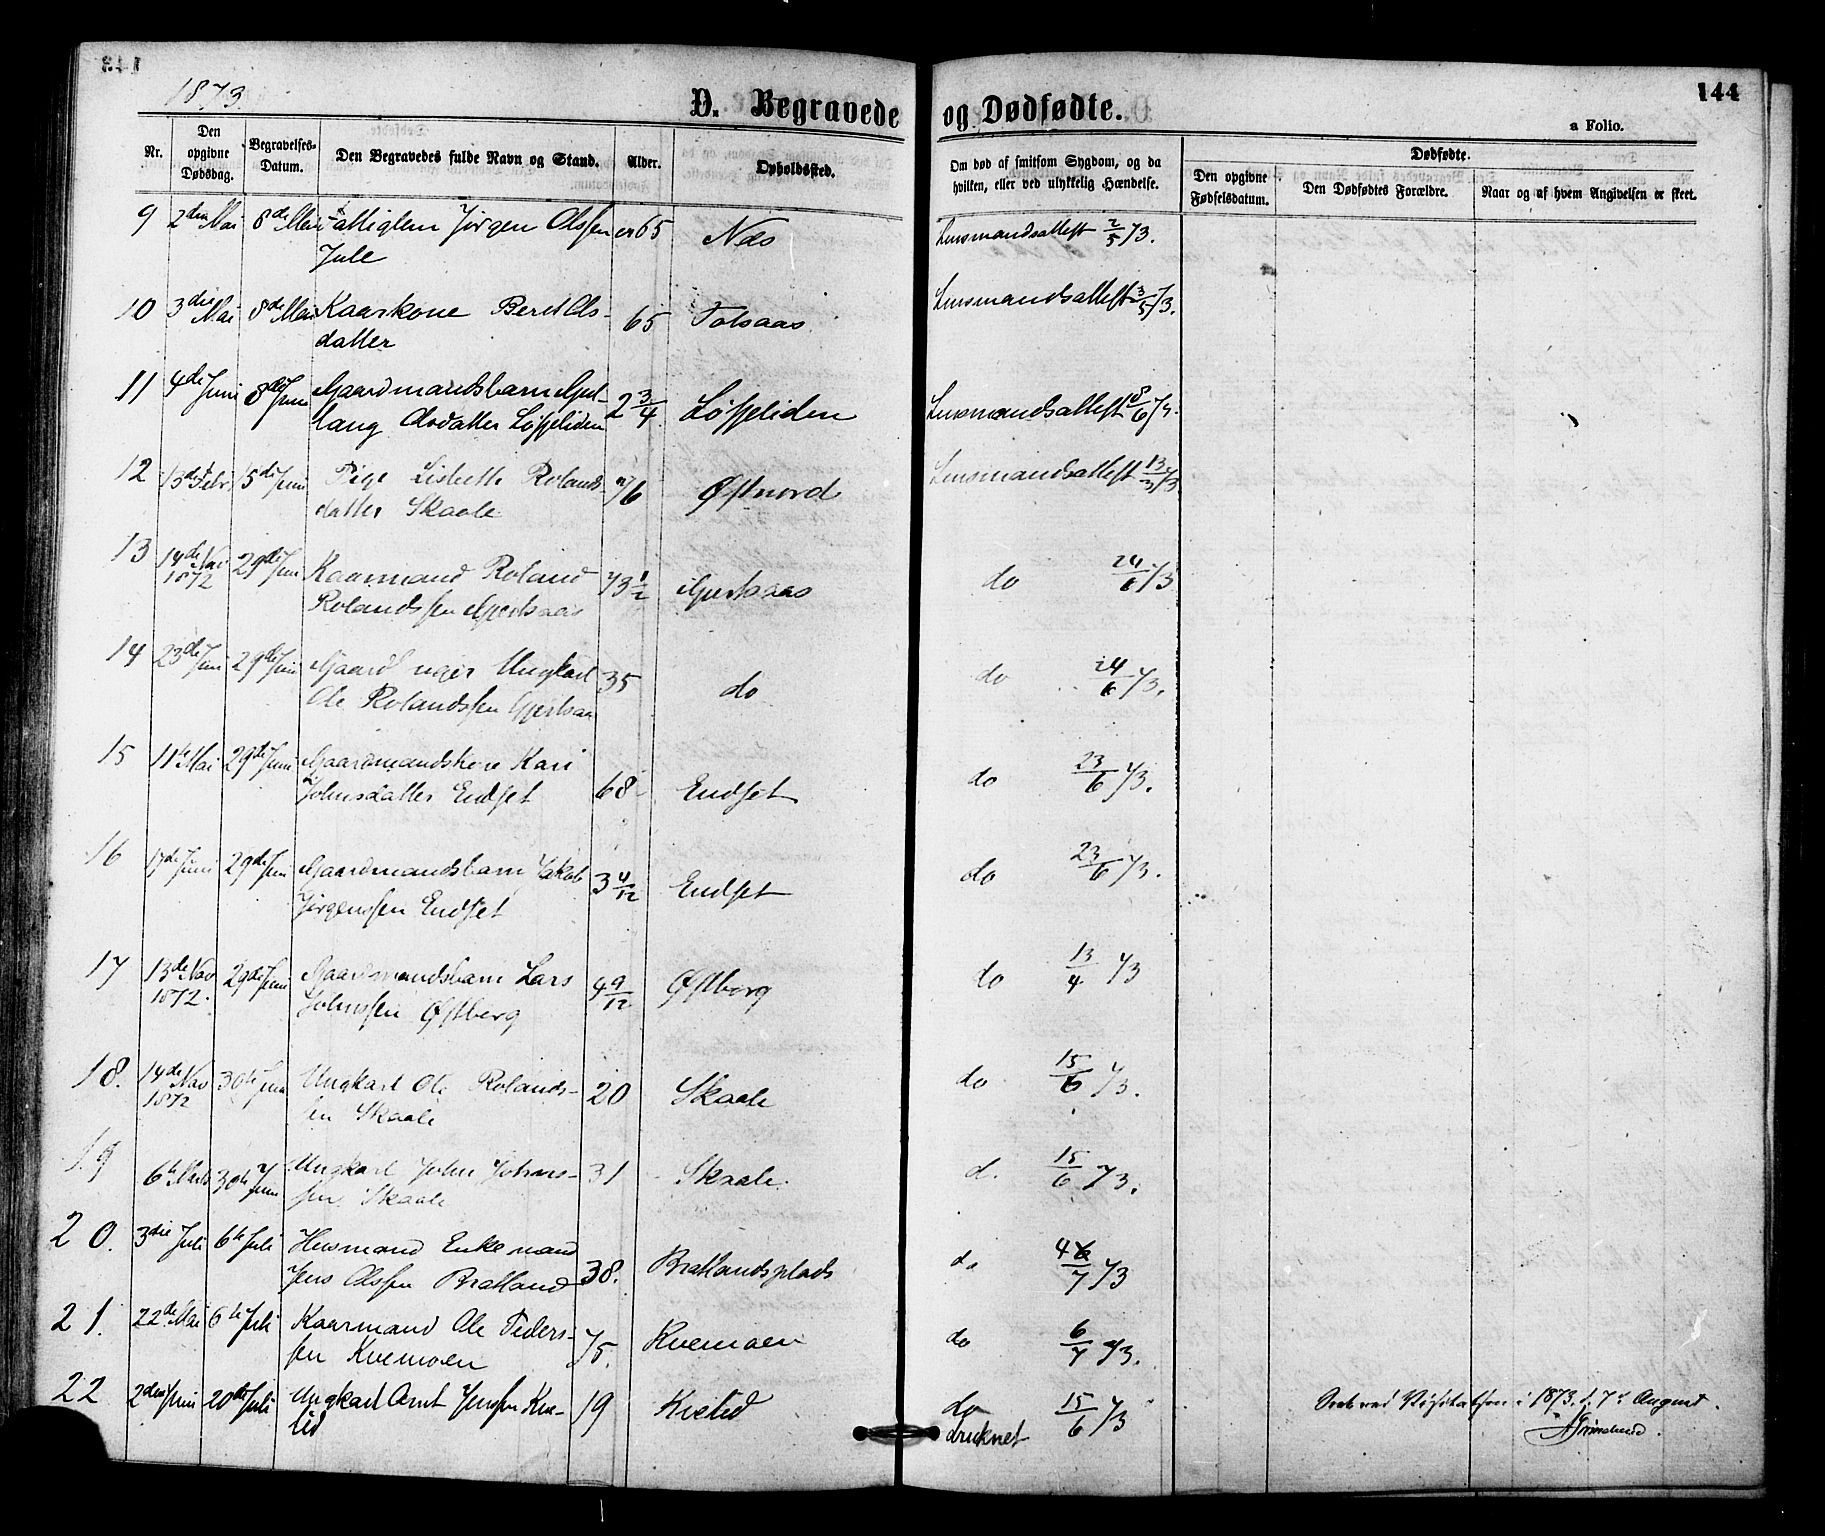 143
1873
144
D. Begravede og Dødfødte.
a Folio.
Nr.
Den opgivne Dødsdag.
Begravelses-Datum.
Den Begravedes fulde Navn og Stand.
Alder.
Opholdssted.
Om død af smitsom Sygdom, og da hvilken, eller ved ulykkelig Hændelse.
Dødfødte.
Den opgivne Fødselsdatum.
Den Dødfødtes Forældre.
Naar og af hvem Angivelsen er skeet.
9 2den Mai 8de Mai Fattiglem Jørgen Olssen 65 Næs Lensmandsattest 2/5 73.
Jule
10 3die Mai 8de Mai Kaarkone Beret Ols- 65 Totsaas Lensmandsattest 3/5 73.
datter
11 4de Juni 8de Juni Gaardmandsbarn Gul- 2 3/4 Løfsjeliden Lensmandsattest 8/6 73.
laug datter Løfsjeliden
12 13de Febr 15de Juni Pige Lisbeth Rolands- 76 Østnord Lensmandsattest 13/3 73
datter Skaale
13 14de Nov 1872 29de Juni Kaarmand Roland 73 1/2 Gjertsaas do 24/6 73
Rolandssen Gjertsaas
14 23de Juni 29de Juni Gaard Ungkarl 35 do do 24/6 73.
Ole Rolandssen Gjertsaas
15 11te Mai 29de Juni Gaardmandskone Kari 68 Endset do 23/6 73.
Johnsdatter Endset
16 17de Juni 29de Juni Gaardmandsbarn Jakob 3 4/12 Endset do 23/6 73.
Jørgenssen Endset
17 13de Nov 1872. 29de Juni Gaardmandsbarn Lars 4 9/12 Østborg do 13/4 73
Johnssen Østberg
18. 14de Nov 1872 30te Juni Ungkarl Ole Rolands- 20 Skaale do 15/6 73.
sen Skaale
19 6te Marts 30te Juni Ungkarl John Johns- 31 Skaale. d. 15/6 73.
sen Skaale
20. 3die Juli 6te Juli Husmand Enkemand 38. Bratlandsplads do 73
Jens Olssen Bratland
21. 22de Mai 6te Juli Kaarmand Ole Peders- 75. Kvemoen do 6/7 73.
sen Kvemoen
22 2den Juni 20de Juli Ungkarl Arnt Jenssen Kve- 19 do 15/6 73
lid druknet
Seet ved Visitatsen i 1873. d. 7de August.